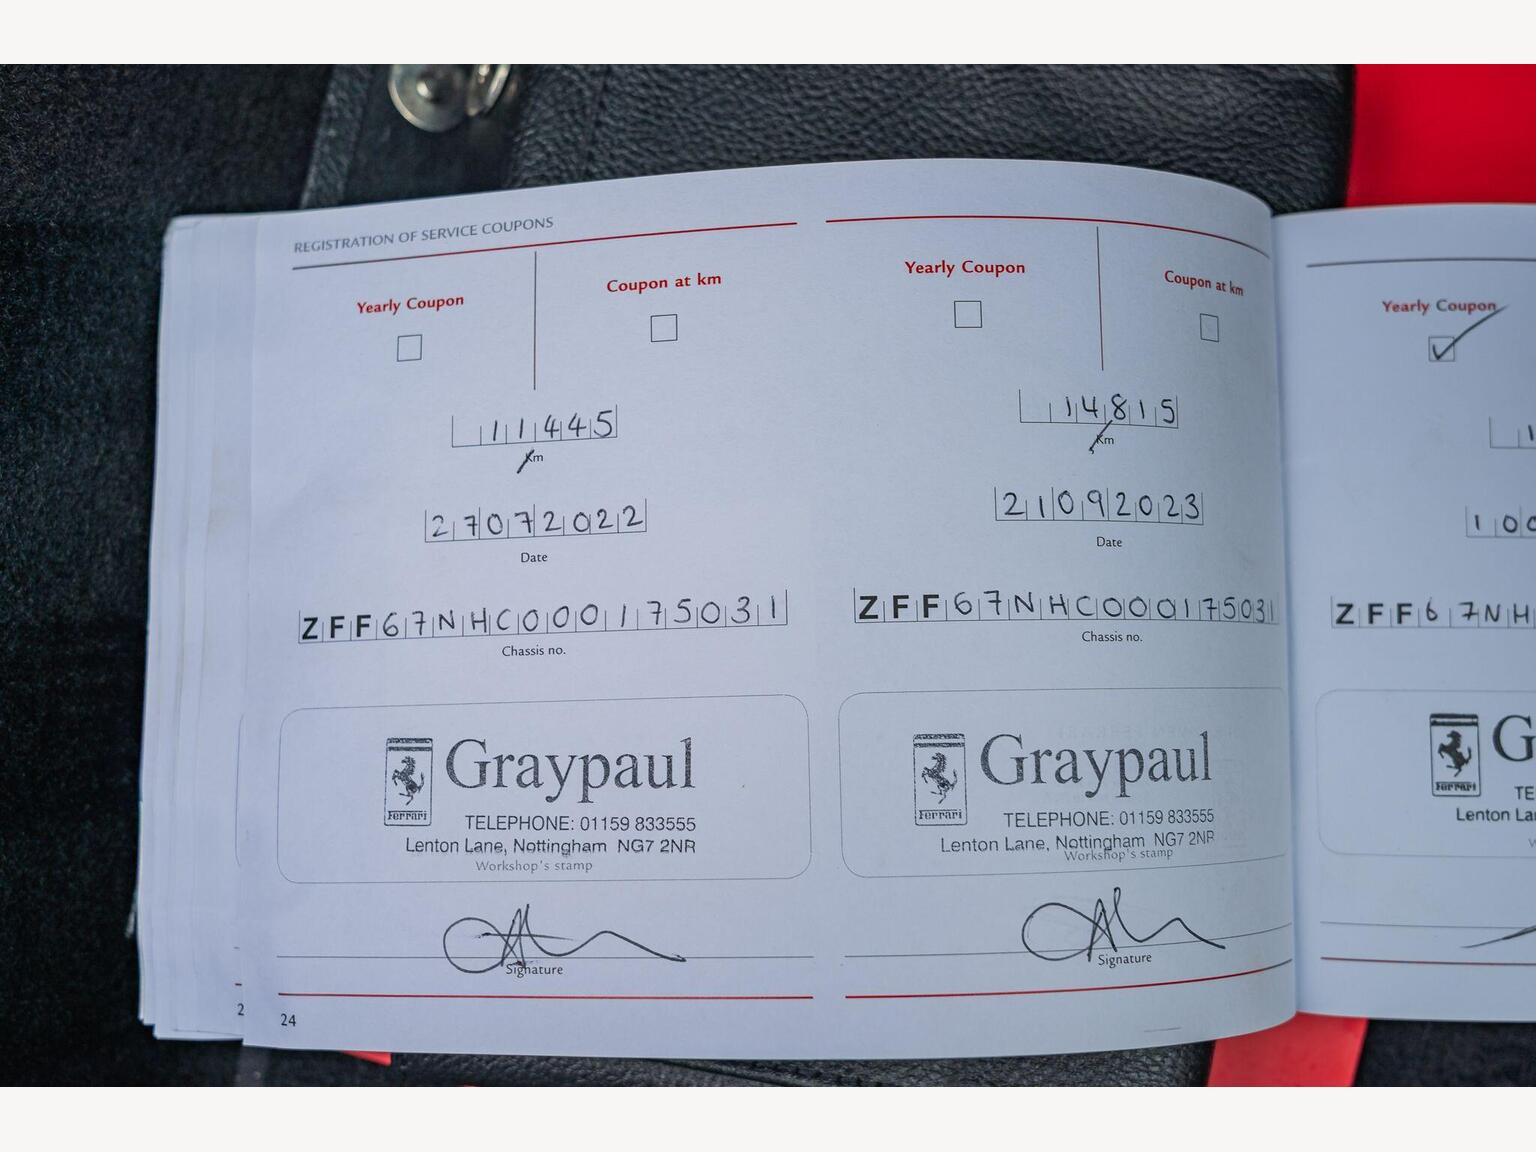 REGISTRATION OF SERVICE COUPONS
Yearly Coupon
Coupon at km
11445
Km
27072022
Date
ZFF67NHC000175031
Chassis no.
Ferrari
Graypaul
TELEPHONE: 01159 833555
Lenton Lane, Nottingham NG7 2NR
Workshop's stamp
Signature
24
Yearly Coupon
Coupon at km
14815
Km
21092023
Date
ZFF67NHC000175031
Chassis no.
Ferrari
Graypaul
TELEPHONE: 01159 833555
Lenton Lane, Nottingham NG7 2NR
Workshop's stamp
Signature
Yearly Coupon
1
100
ZFF67NH
Ferrari
G
TE
Lenton La
2